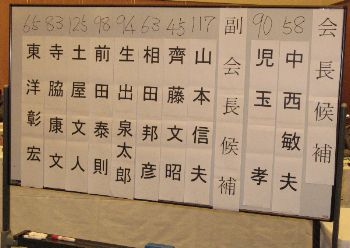 会長候補
58 中西敏夫
90 児玉孝
副会長候補
117 山本信夫
45 齊藤文昭
63 相田邦彦
94 生出泉太郎
98 前田泰則
125 土屋文人
83 寺脇康文
65 東洋彰宏